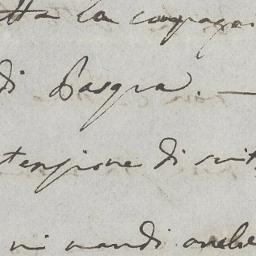 tta la compagn
di Pasqua. —
tenzione di scrit
mi mandi anche